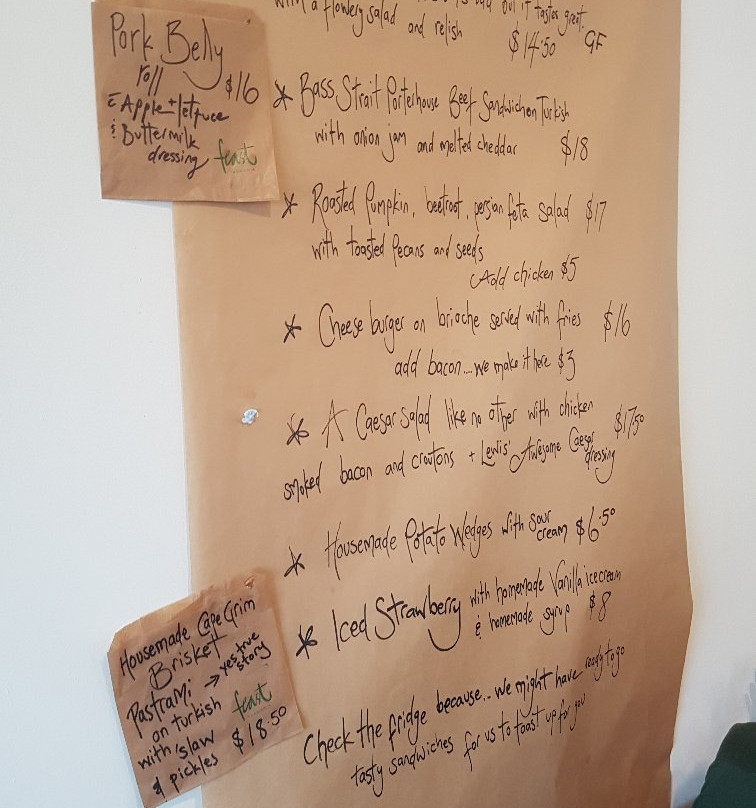 with a flowery salad and relish $14.50 GF
* Bass Strait Porterhouse Beef Sandwich on Turkish
with onion jam and melted cheddar $18
* Roasted Pumpkin, beetroot, persian feta salad $17
with toasted pecans and seeds
Add chicken $5
* Cheese burger on brioche served with fries $16
add bacon.... we make it here $3
* A Caesar Salad like no other with chicken $17.50
smoked bacon and croutons + Lewis' Awesome Caesar dressing
* Housemade Potato Wedges with sour cream $6.50
* Iced Strawberry with homemade Vanilla icecream
& homemade syrup $8
Check the fridge because... we might have ready to go
tasty sandwiches for us to toast up for you
Pork Belly
roll $16
Apple + lettuce
& Buttermilk
dressing feast
Housemade Cape Grim
Brisket
Pastrami → yes true story
on turkish feast
with 'slaw
& pickles $18.50